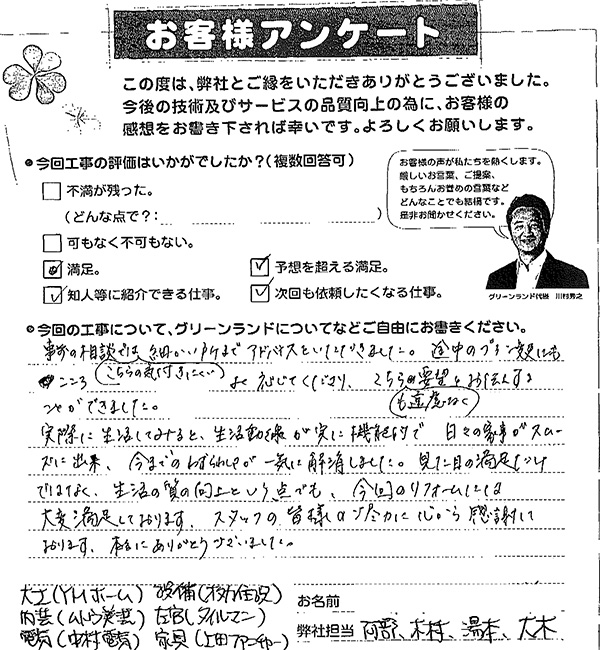 お客様アンケート
この度は、弊社とご縁をいただきありがとうございました。
今後の技術及びサービスの品質向上の為に、お客様の
感想をお書き下されば幸いです。よろしくお願いします。
今回工事の評価はいかがでしたか?(複数回答可)
不満が残った。
(どんな点で?: )
可もなく不可もない。
満足。
予想を超える満足。
知人等に紹介できる仕事。
次回も依頼したくなる仕事。
お客様の声が私たちを熱くします。
厳しいお言葉、ご提案、
もちろんお誉めの言葉など
どんなことでも結構です。
是非お聞かせください。
グリーンランド代表 川村秀之
今回の工事について、グリーンランドについてなどご自由にお書きください。
事前の相談では 細かい所まで アドバイスをいただきました。 途中のプラン変更にも
こころよく応じてくださり、 こちらの要望をお伝えする
こちらの気付きにくい
も遠慮なく
ことができました。
実際に生活してみると、生活動線が実に機能的で 日々の家事がスムー
ズに出来、 今までのわずらわしさが一気に解消しました。 見た目の満足だけ
ではなく、生活の質の向上という点でも、今回のリフォームには
大変満足しております。スタッフの皆様のご尽力に心から感謝して
おります。本当にありがとうございました。
大工(YHホーム) 設備(
内装(ムトウ美装) 左官(タイルマン)
電気(中村電気) 家具(上田ファニチャー)
お名前
弊社担当 阿部、木村、湯本、大木